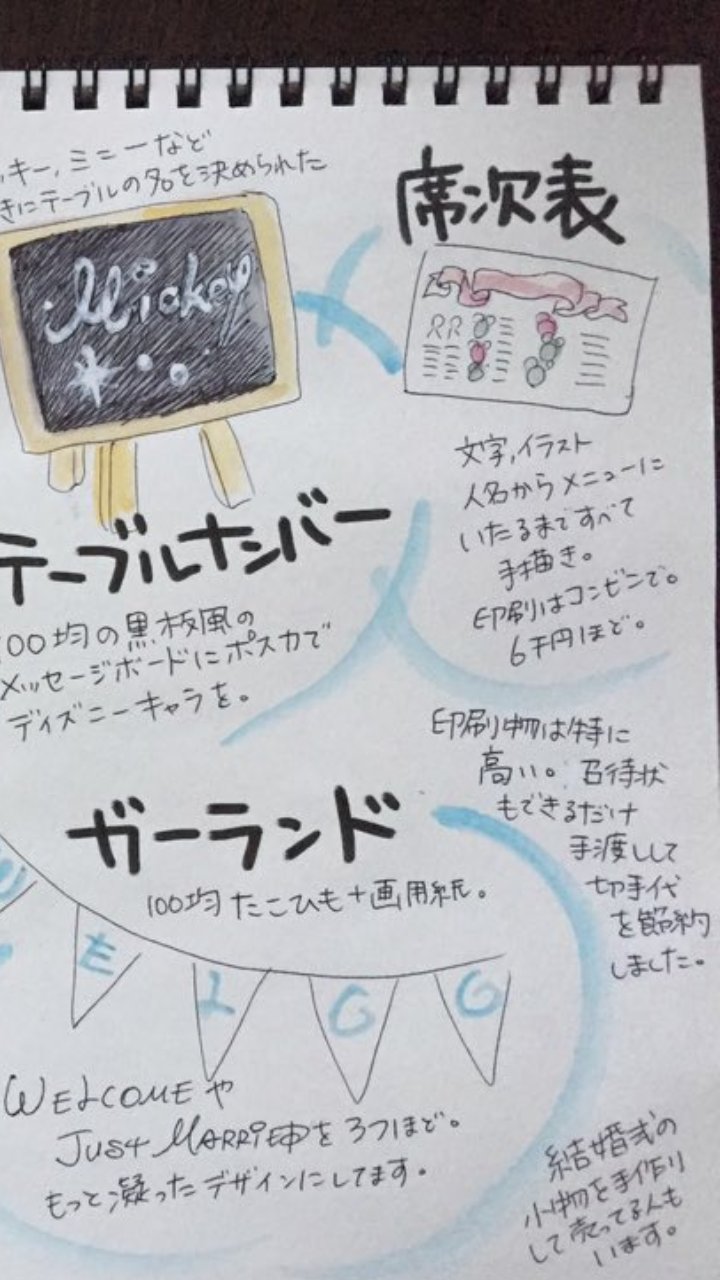 ッキー,ミニーなど
きにテーブルの名を決められた
Mickey
テーブルナンバー
100均の黒板風の
メッセージボードにポスカで
ディズニーキャラを。
席次表
RR
文字,イラスト
人名からメニューに
いたるまですべて
手描き。
印刷はコンビンで。
6千円ほど。
印刷物は特に
高い。召待状
もできるだけ
手渡しして
切手代
を節約
しました。
ガーランド
100均たこひも+画用紙。
W
E
L
C
O
WELCOMEや
JUST MARRIEDを3つほど。
もっと凝ったデザインにしてます。
結婚式の
小物を手作り
して売ってる人も
います。